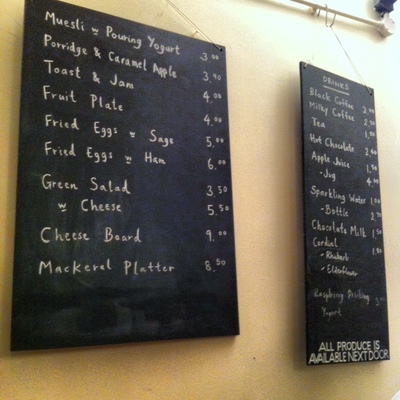 Muesli w Pouring Yogurt 3.00
Porridge & Caramel Apple 3.90
Toast & Jam 4.00
Fruit Plate 4.00
Fried Eggs w Sage 5.00
Fried Eggs w Ham 6.00
Green Salad 3.50
w Cheese 5.50
Cheese Board 9.00
Mackerel Platter 8.50
DRINKS
Black Coffee 2.00
Milky Coffee 2.50
Tea 1.50
Hot Chocolate 2.60
Apple Juice 1.50
- Jug 4.00
Sparkling Water 1.00
- Bottle 2.70
Chocolate Milk 1.50
Cordial 1.50
- Rhubarb
- Elderflower
Raspberry Drinking
Yogurt
ALL PRODUCE IS
AVAILABLE NEXT DOOR